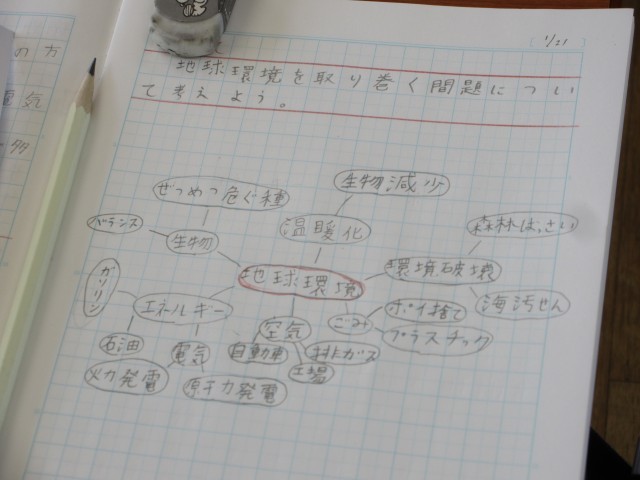 の方
電気
1/21
地球環境を取り巻く問題につい
て考えよう。
生物減少
ぜつめつ危ぐ種
森林ばっさい
バランス
生物
温暖化
環境破壊
地球環境
ガソリン
エネルギー
海汚せん
ポイ捨て
ごみ
空気
プラスチック
石油
電気
自動車
排ガス
工場
火力発電
原子力発電